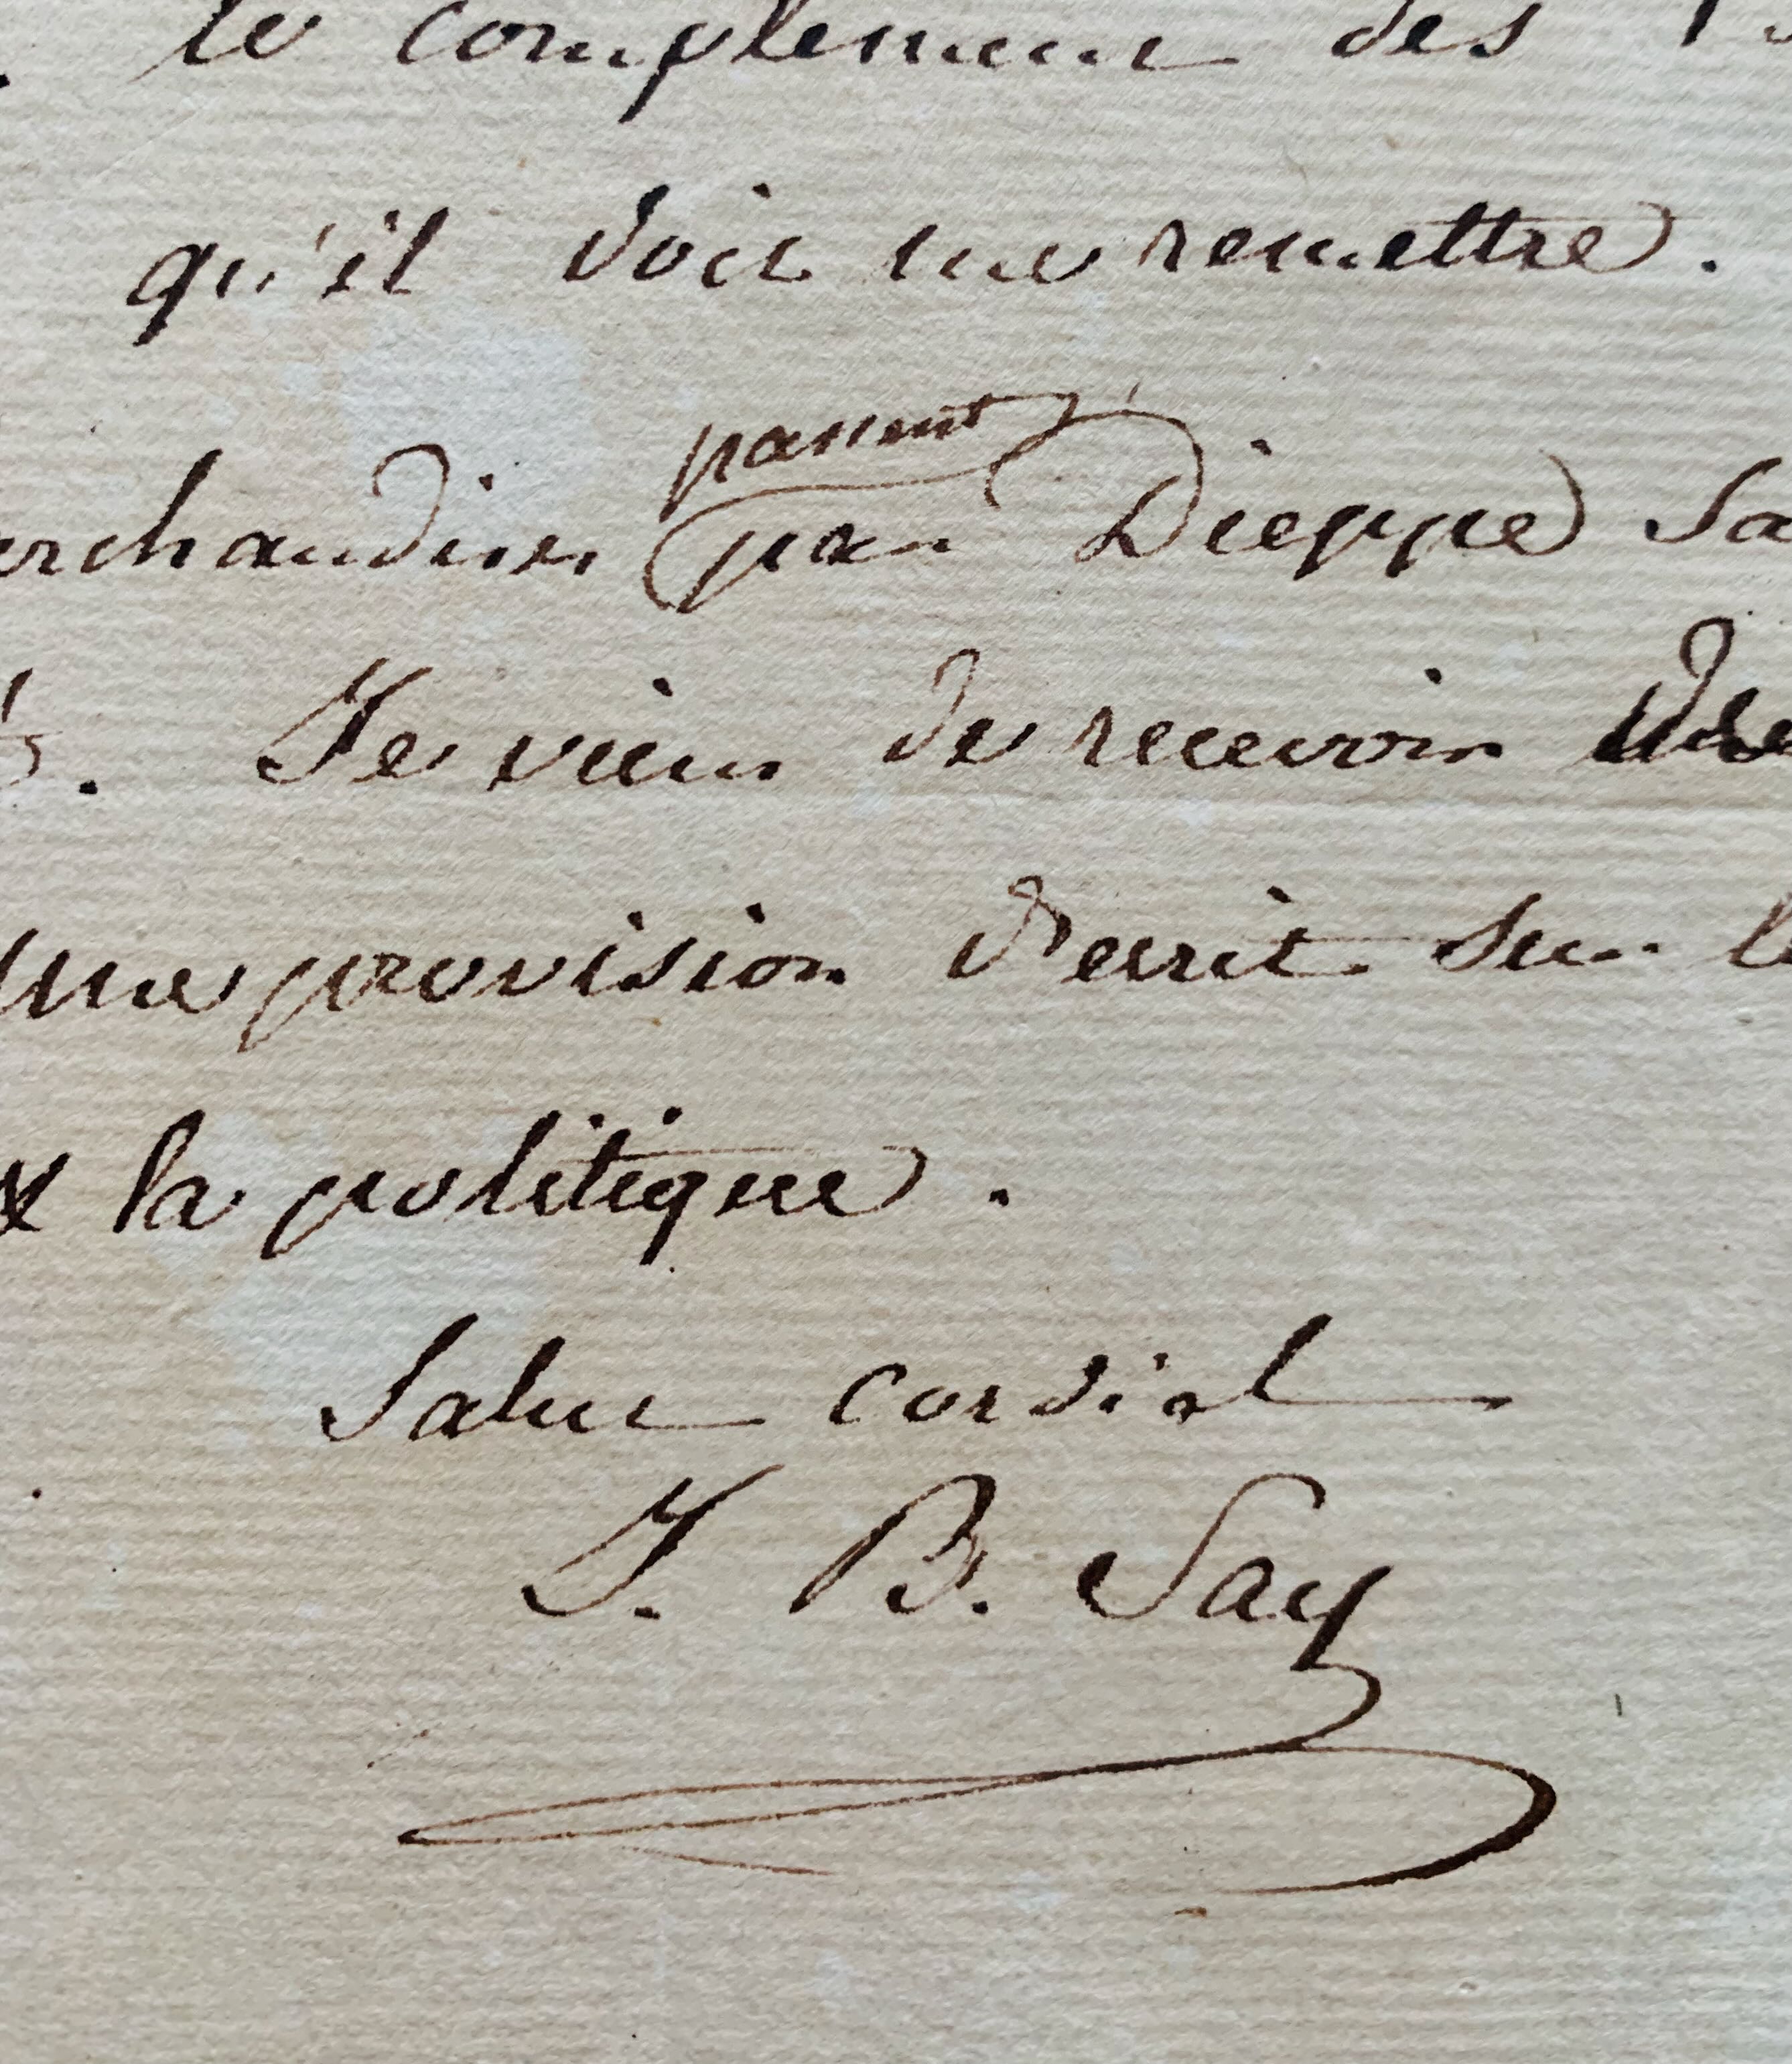 le complement des
qu'il doit me remettre.
passent
archandises par Dieppe sa
Je viens de recevoir
une provision d'ecrit sur l
& la politique.
Salut cordial
J. B. Say